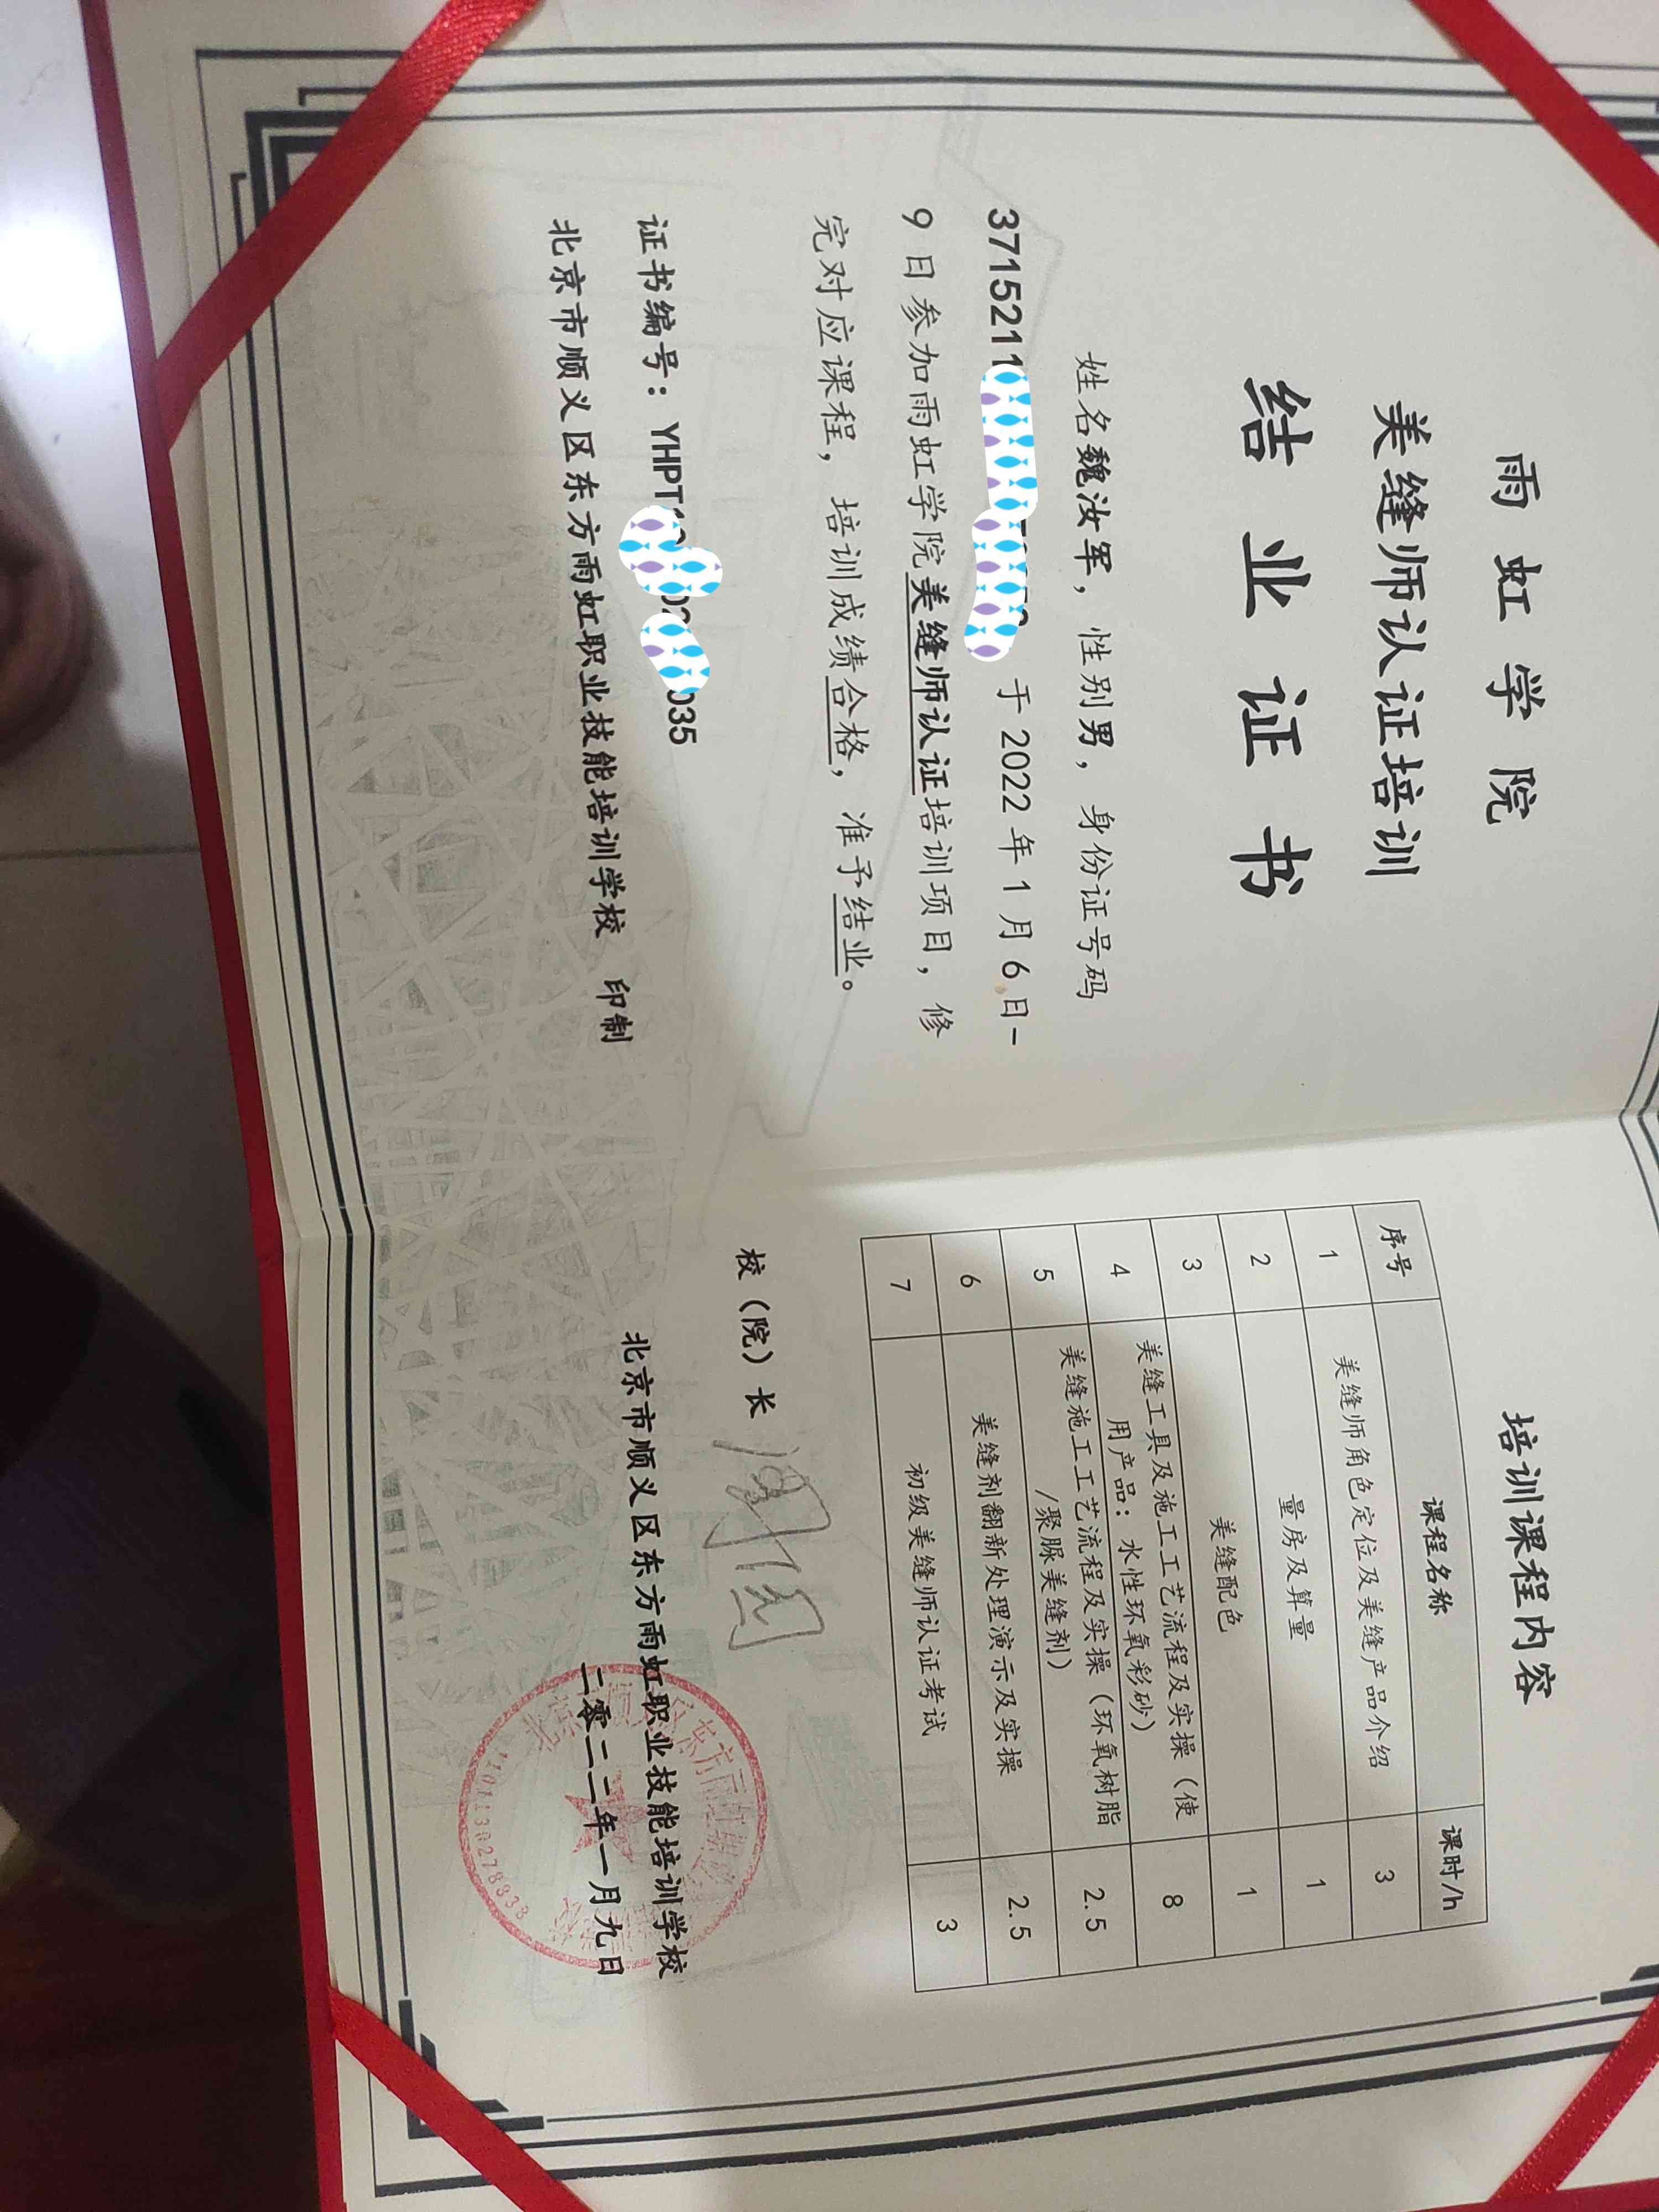 雨虹学院
美缝师认证培训
结业证书
姓名魏汝军，性别男，身份证号码
3715211 于 2022 年 1 月 6 日-
9 日参加雨虹学院美缝师认证培训项目，修
完对应课程，培训成绩合格，准予结业。
证书编号：YHPT 035
北京市顺义区东方雨虹职业技能培训学校 印制
培训课程内容
序号 课程名称 课时/h
1 美缝师角色定位及美缝产品介绍 3
2 量房及算量 1
3 美缝配色 1
4 美缝工具及施工工艺流程及实操（使
用产品：水性环氧彩砂） 8
5 美缝施工工艺流程及实操（环氧树脂
/聚脲美缝剂） 2.5
6 美缝剂翻新处理演示及实操 2.5
7 初级美缝师认证考试 3
校（院）长
北京市顺义区东方雨虹职业技能培训学校
二零二二年一月九日